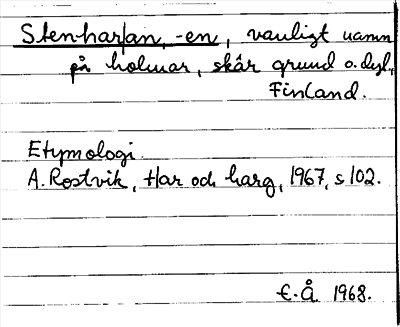 Stenhar|an, -en, vanligt namn
på holmar, skär grund o.dyl.,
Finland.
Etymologi.
A. Rostvik, Har och harg, 1967, s 102.
E.Å. 1968.